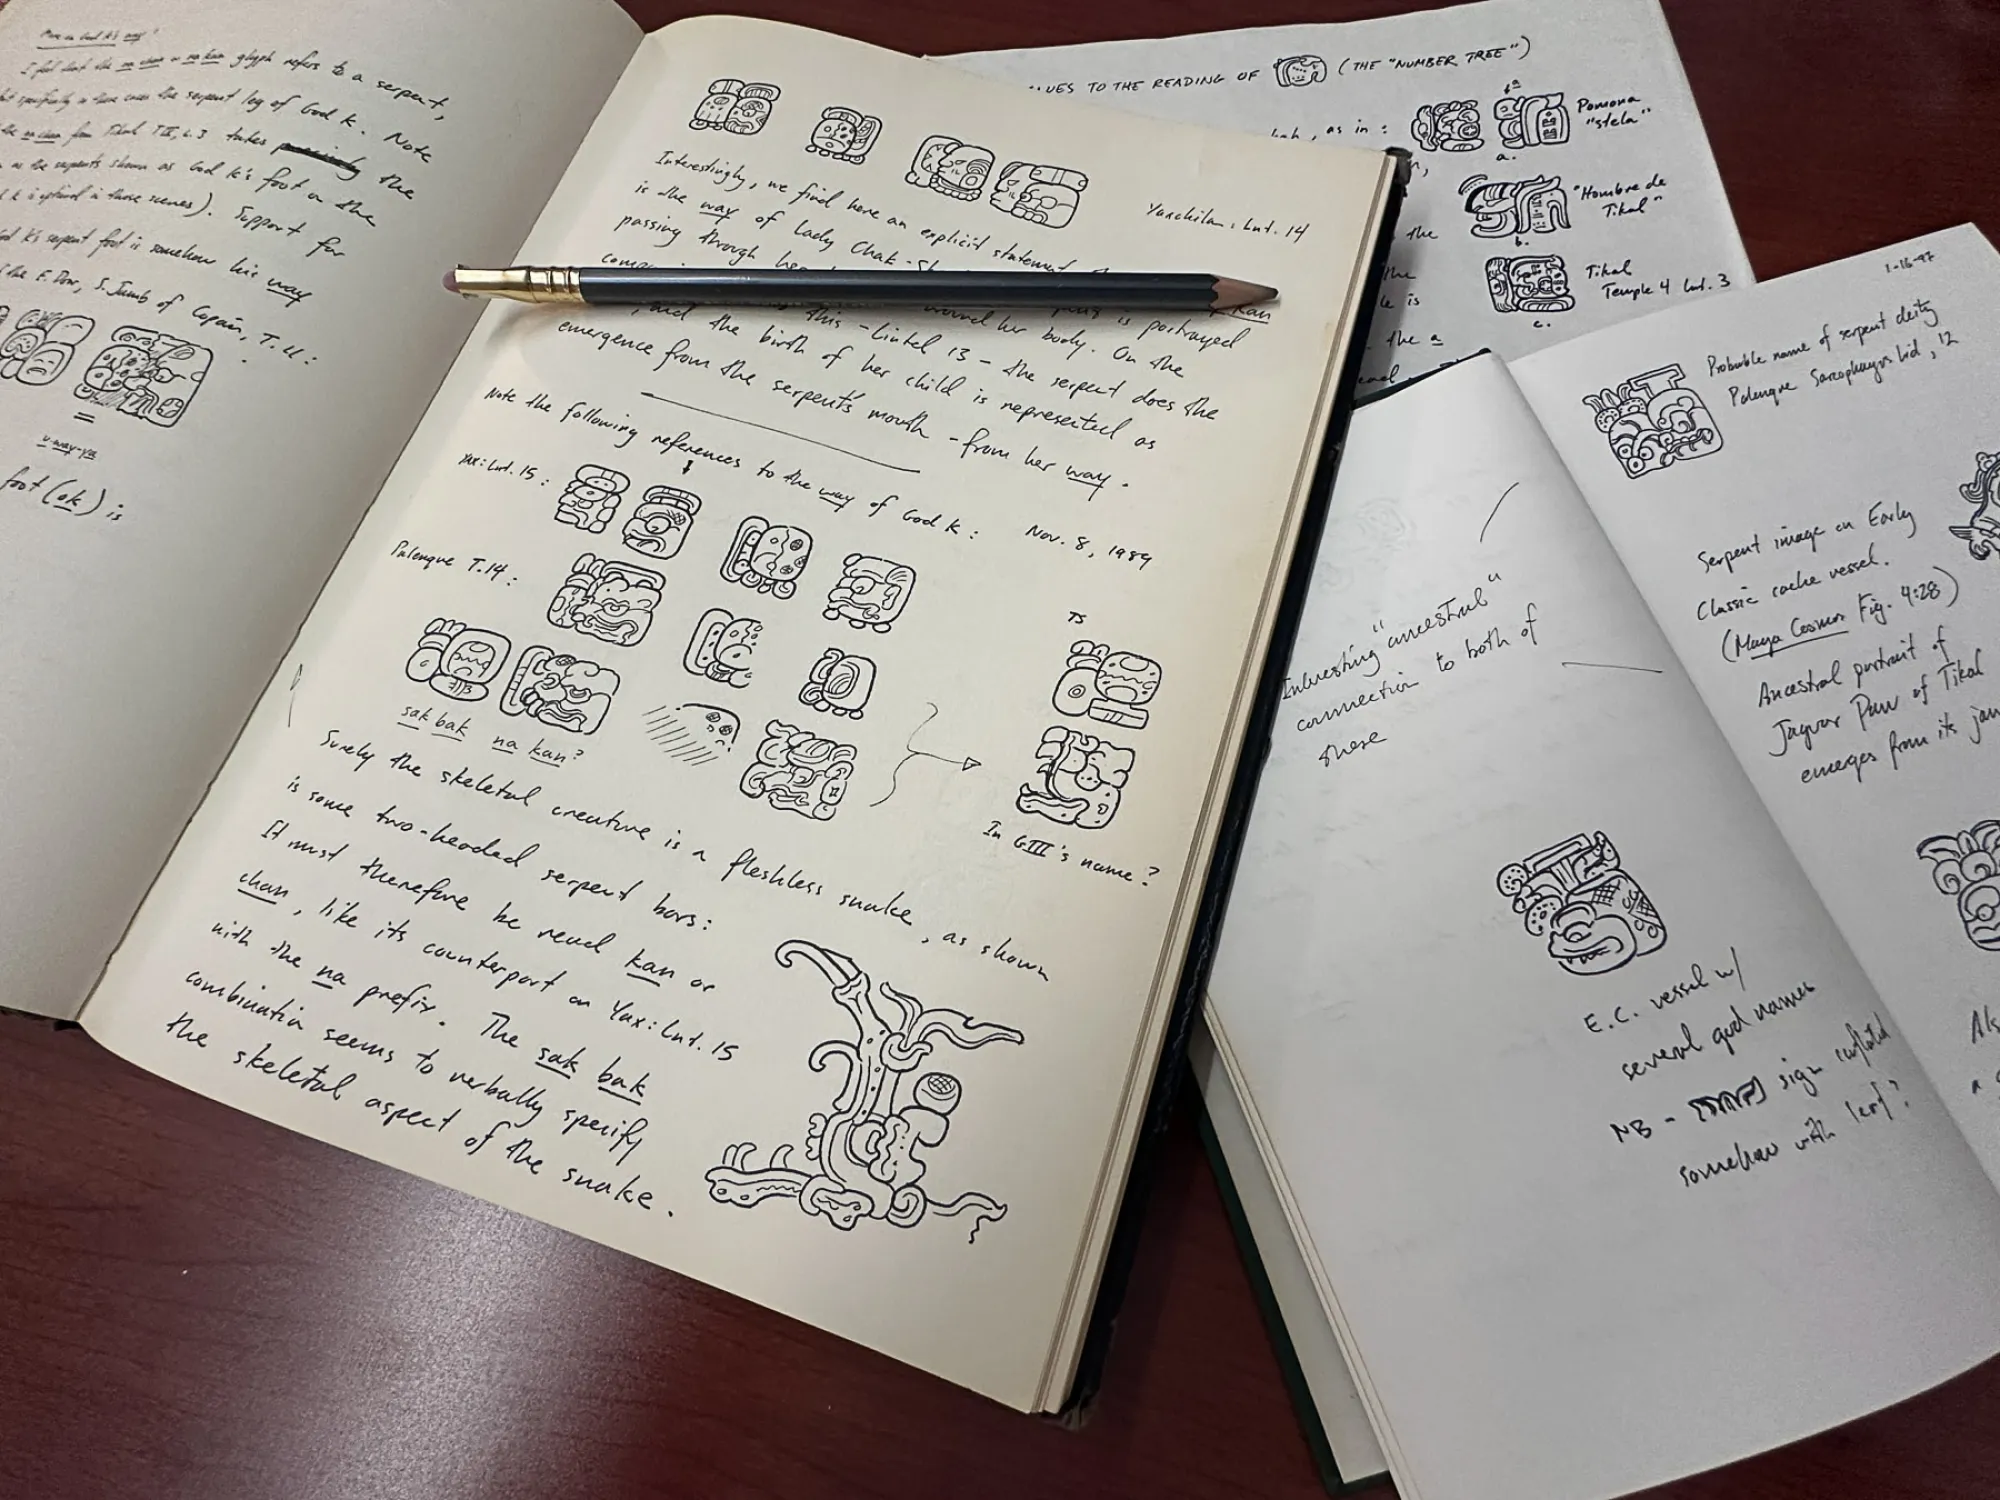 More on God K's way?
I feel that the na chan or na kan glyph refers to a serpent,
specifically in these cases the serpent leg of God K. Note
the na chan from Tikal T.IV, L.3 takes the
as the serpents shown as God K's foot on the
K is optional in those scenes). Support for
God K's serpent foot is somehow his way
the E. Door, S. Jamb of Copan, T. 11:
=
u-way-ya
foot (ok) is
Yaxchilan, Lnt. 14
Interestingly, we find here an explicit statement
is the way of Lady Chak-Sk
passing through he
kan
this - Lintel 13 - around her body. On the
is portrayed
, and the birth of her child is represented as
the serpent does the
emergence from the serpent's mouth - from her way.
Note the following references to the way of God K:
Nov. 8, 1989
Yax: Lnt. 15:
Palenque T.14:
sak bak na kan?
TS
In GIII's name?
Surely the skeletal creature is a fleshless snake, as shown
is some two-headed serpent bars:
It must therefore be read kan or
chan, like its counterpart on Yax: Lnt. 15
with the na prefix. The sak bak
combination seems to verbally specify
the skeletal aspect of the snake.
UES TO THE READING OF (THE "NUMBER TREE")
, as in:
Pomona
"stela"
a.
"Hombre de
Tikal"
b.
Tikal
Temple 4 Lnt. 3
c.
the
the
is
the a
Interesting "ancestral"
connection to both of
these
1-16-97
Probable name of serpent deity
Palenque Sarcophagus lid, 12
Serpent image on Early
Classic cache vessel.
(Maya Cosmos Fig. 4:28)
Ancestral portrait of
Jaguar Paw of Tikal
emerges from its jaw
E.C. vessel w/
several god names
NB - sign conflated
somehow with